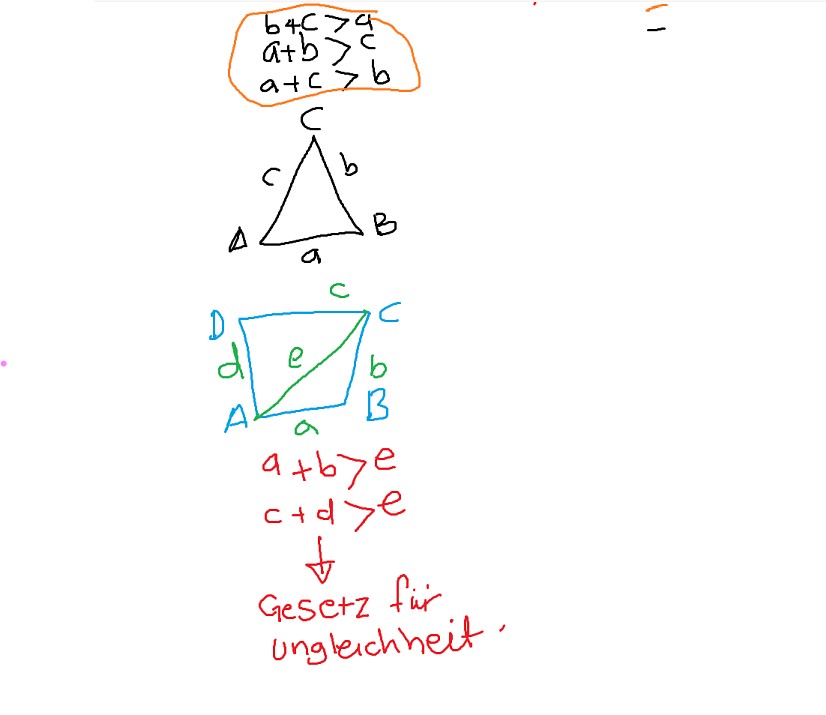 b+c>a
a+b>c
a+c>b
C
c b
A B
a
c
D C
d e b
A B
a
a+b>e
c+d>e
Gesetz für
ungleichheit.